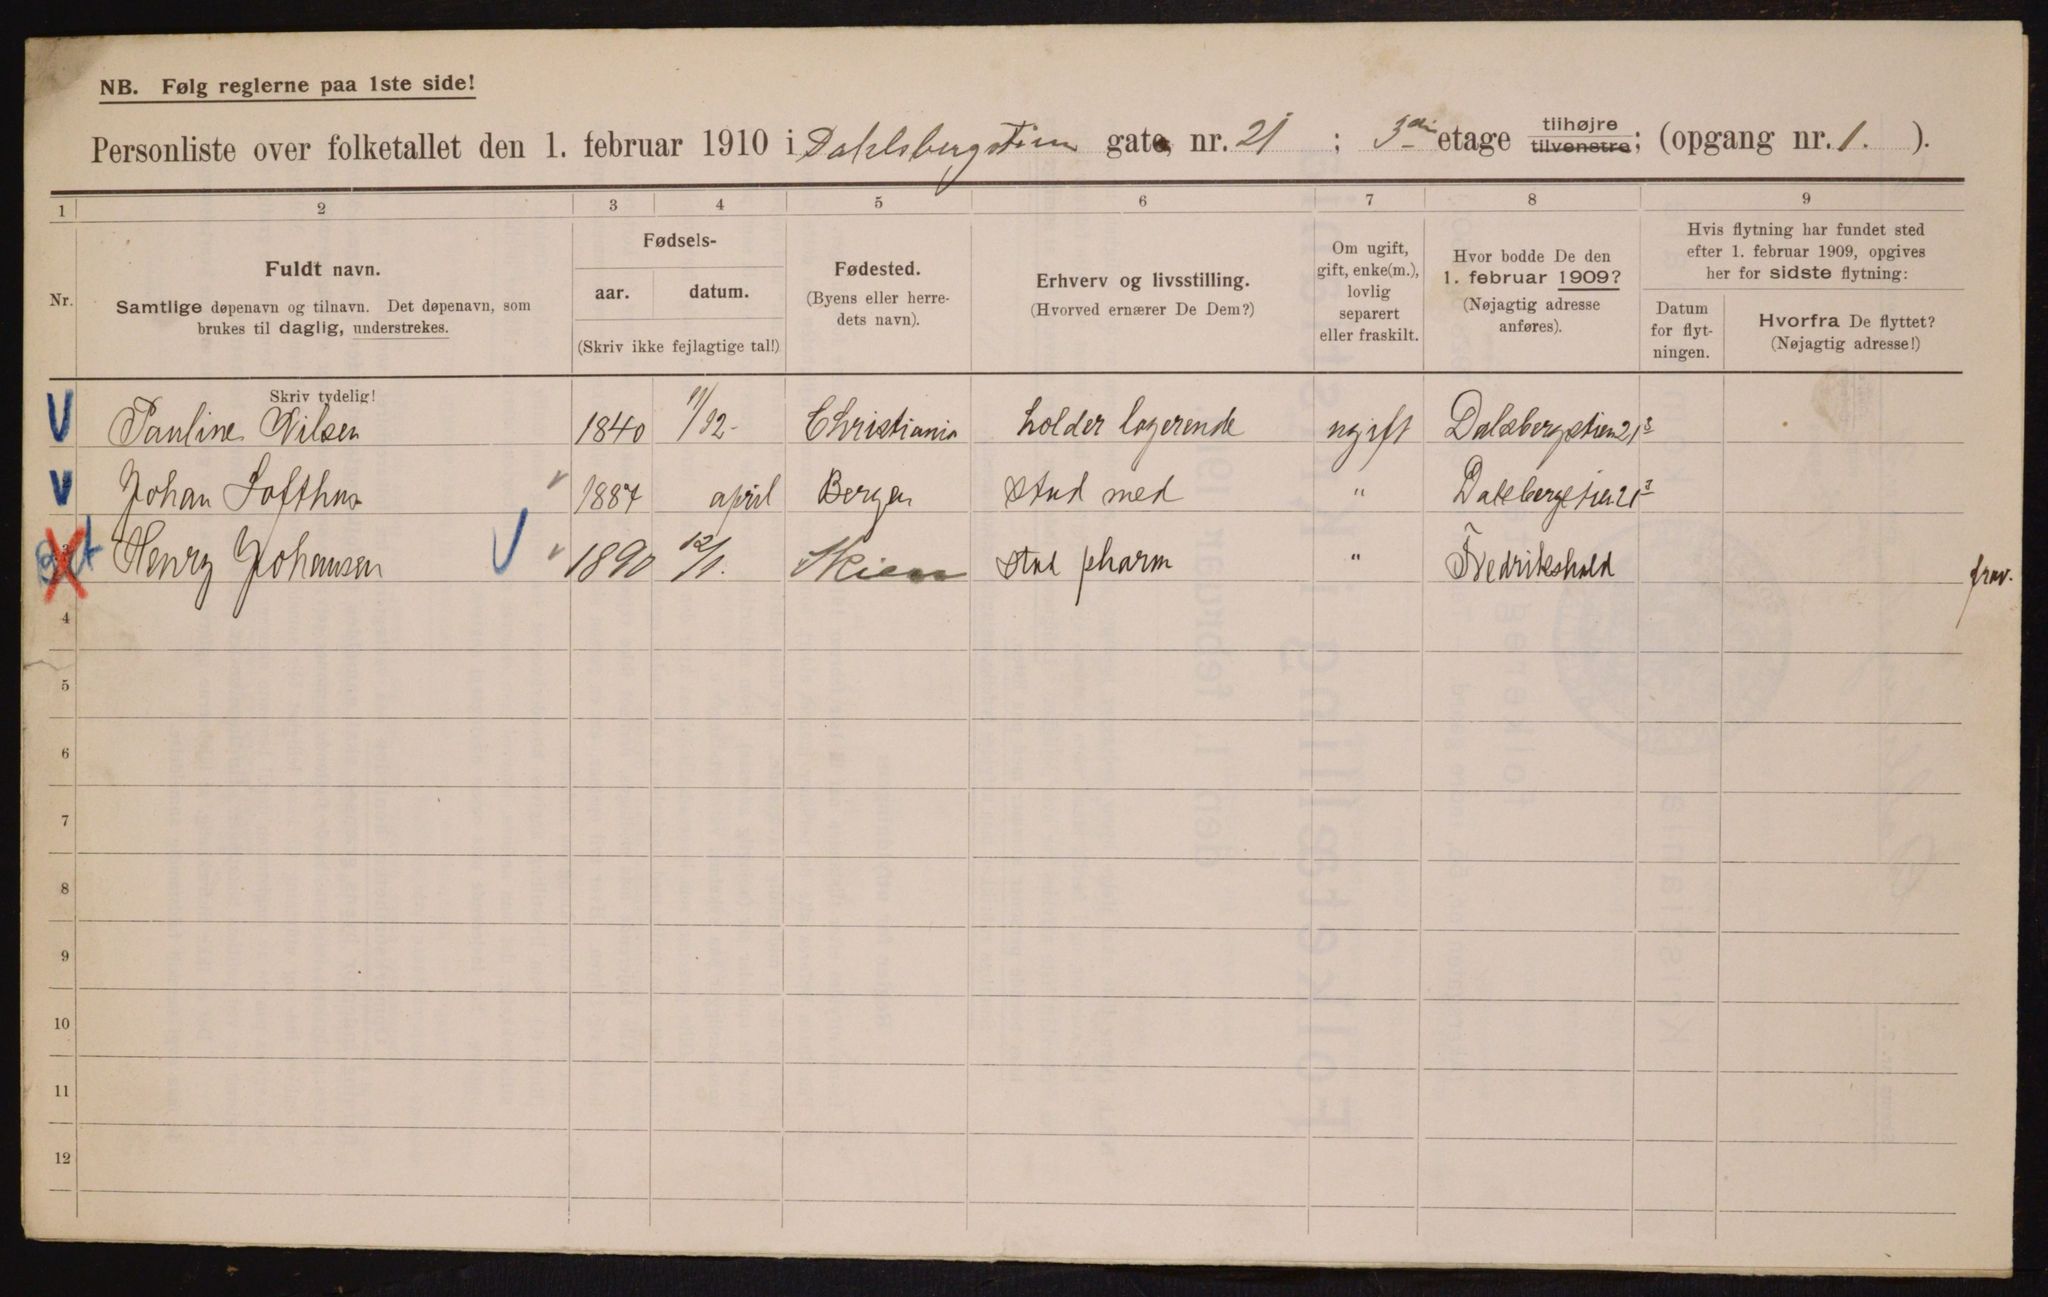 NB. Følg reglerne paa 1ste side!
Personliste over folketallet den 1. februar 1910 i Dahlsbergstien gate, nr. 21 ; 3die etage tilhøjre tilvenstre; (opgang nr. 1. ).
1 2 3 4 5 6 7 8 9
Nr.
Fuldt navn.
Samtlige døpenavn og tilnavn. Det døpenavn, som
brukes til daglig, understrekes.
Fødsels-
aar. datum.
(Skriv ikke fejlagtige tal!)
Fødested.
(Byens eller herre-
dets navn).
Erhverv og livsstilling.
(Hvorved ernærer De Dem?)
Om ugift,
gift, enke(m.),
lovlig
separert
eller fraskilt.
Hvor bodde De den
1. februar 1909?
(Nøjagtig adresse
anføres).
Hvis flytning har fundet sted
efter 1. februar 1909, opgives
her for sidste flytning:
Datum
for flyt-
ningen.
Hvorfra De flyttet?
(Nøjagtig adresse!)
Skriv tydelig!
Pauline Nilsen 1840 11/12- Christiania holder logerende ugift Dalsbergstien 21 3
Johan Lofthus 1887 april Bergen stud med " Dalsbergstien 21 3
3 Henry Johansen 1890 12/1. Skien stud pharm " Fredrikshald frav.
4
5
6
7
8
9
10
11
12